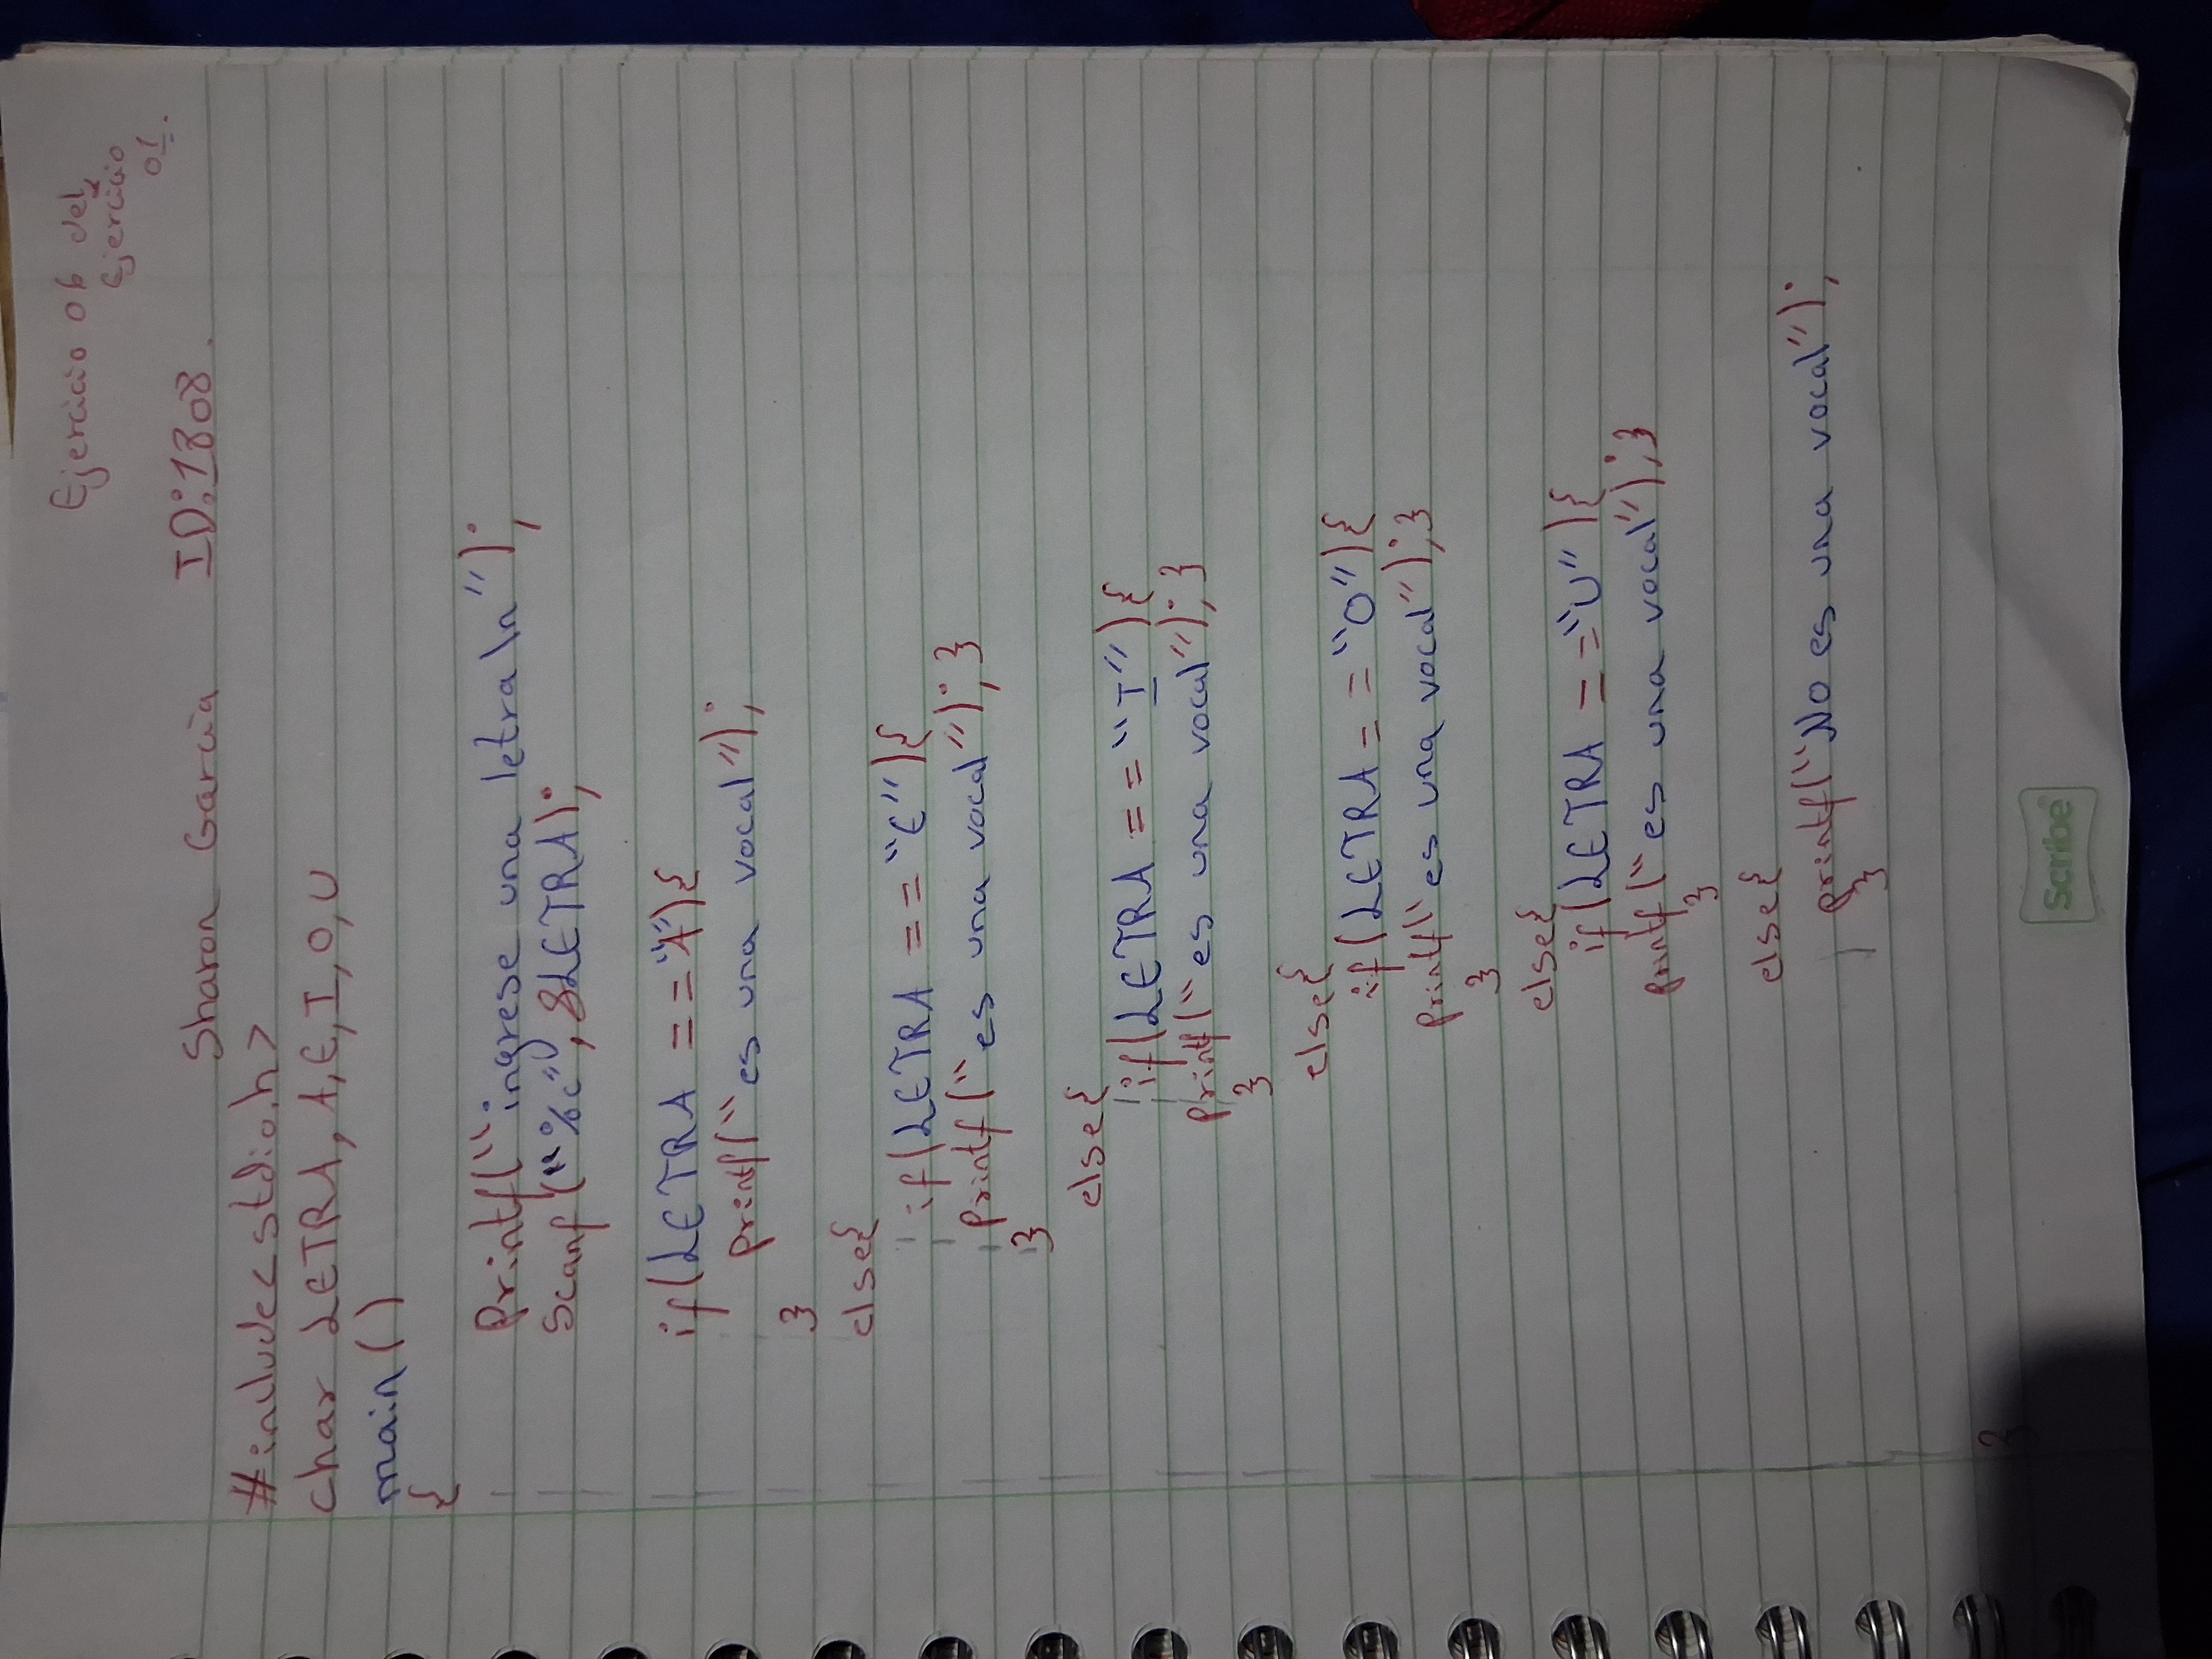 Ejercicio 06 del
Ejercicio
01.
Sharon García ID:1808.
#include<stdio.h>
char LETRA, A,E,I,O,U
main()
{
Printf("ingrese una letra \n");
Scanf("%c",&LETRA);
if(LETRA =="A"){
printf("es una vocal");
}
else{
if(LETRA =="E"){
Printf("es una vocal");}
}
else{
if(LETRA =="I"){
Printf("es una vocal");}
}
else{
if(LETRA =="O"){
Printf("es una vocal");}
}
else{
if(LETRA =="U"){
Printf("es una vocal");}
}
else{
printf("No es una vocal");
}
}
Scribe